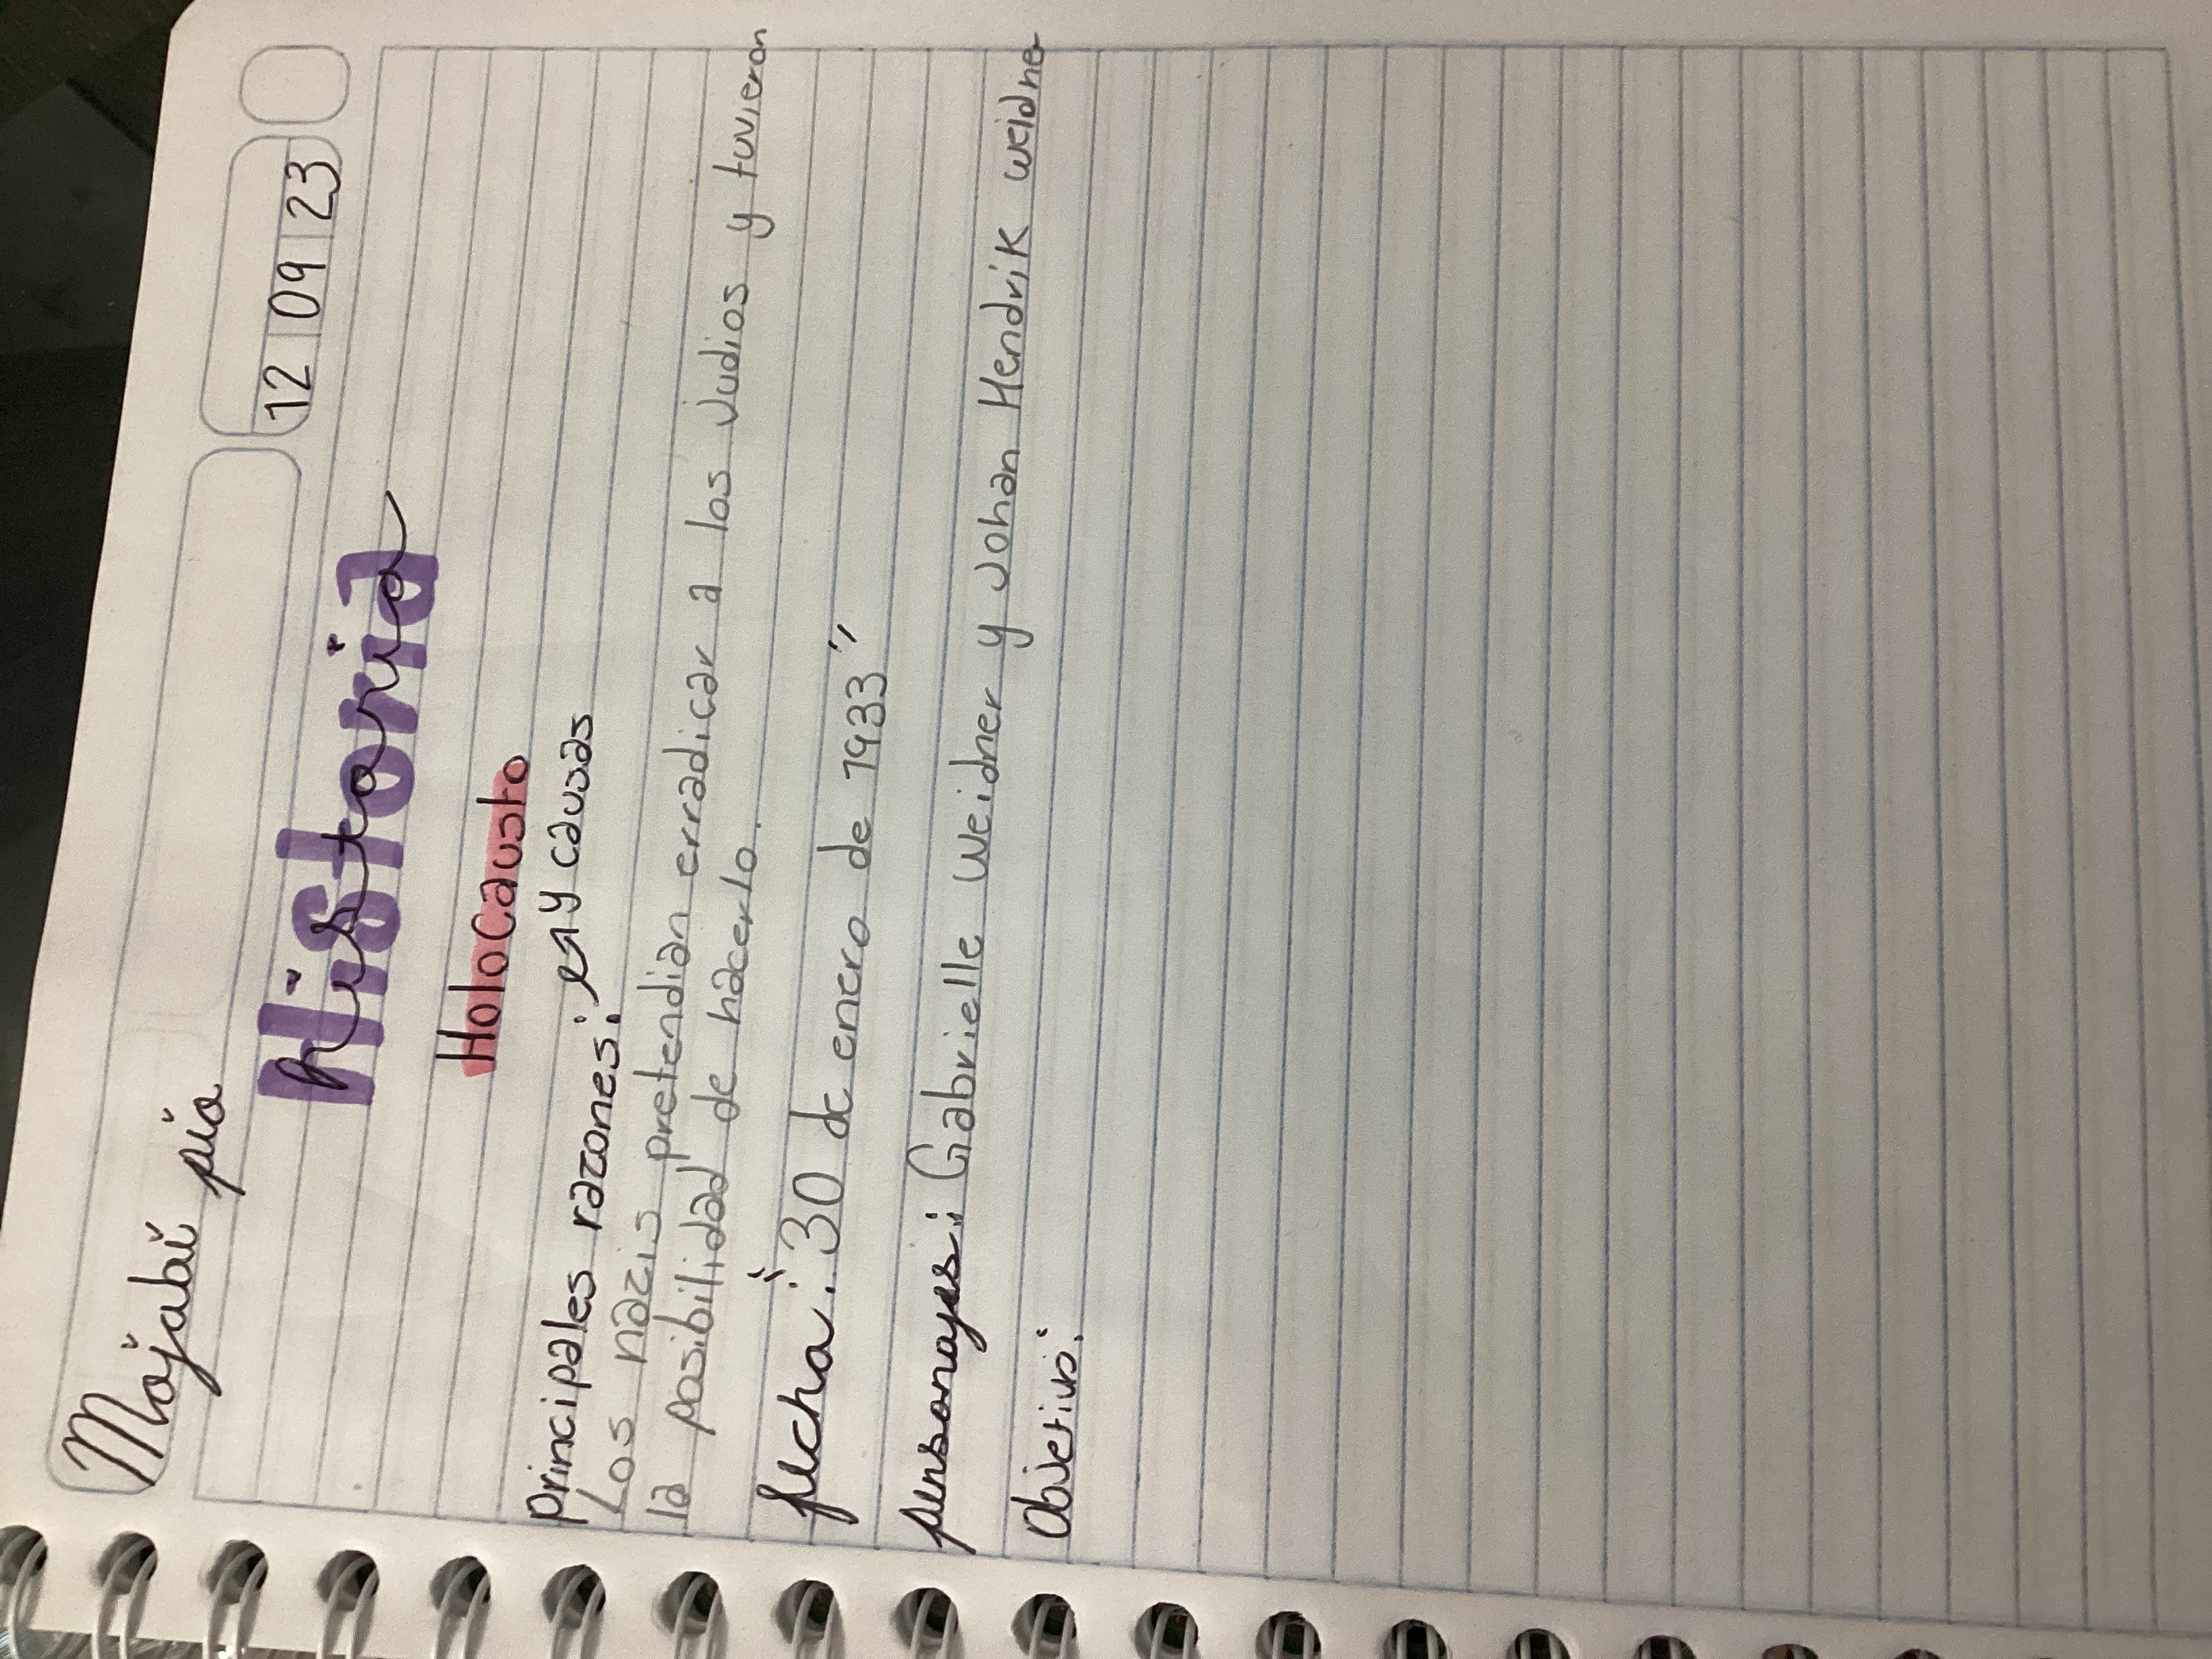 Majabí pío
12 09 23
historia
Holocausto
principales razones: y causas
Los nazis pretendian erradicar a los judios y tuvieron
la posibilidad de hacerlo.
fecha: "30 de enero de 1933"
personajes: Gabrielle Weidner y Johan Hendrik weidner